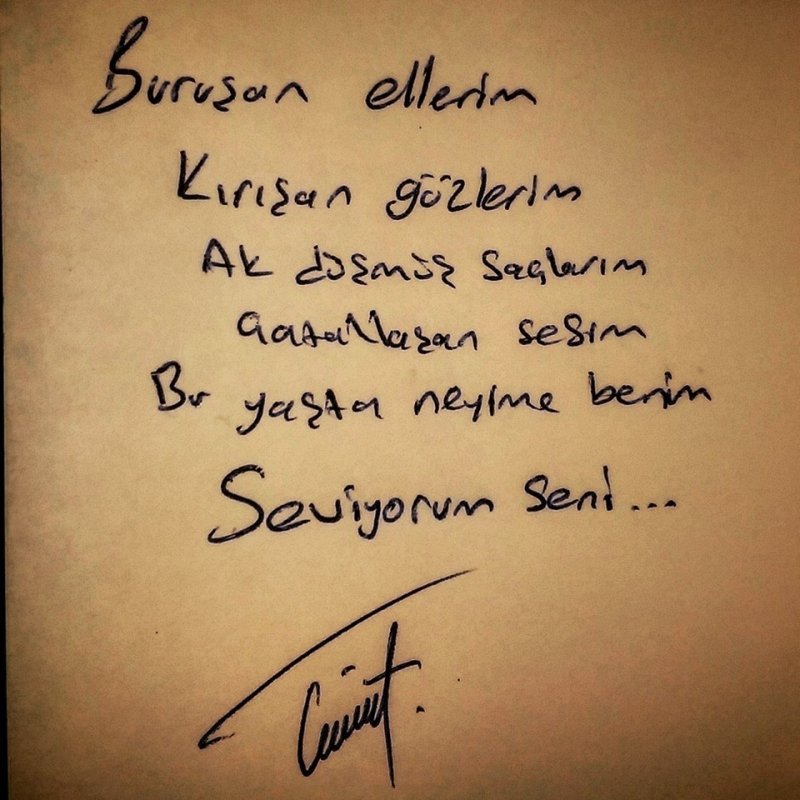 Buruşan ellerim
Kırışan gözlerim
Ak düşmüş saçlarım
Çatallaşan sesim
Bu yaşta neyime benim
Seviyorum seni...